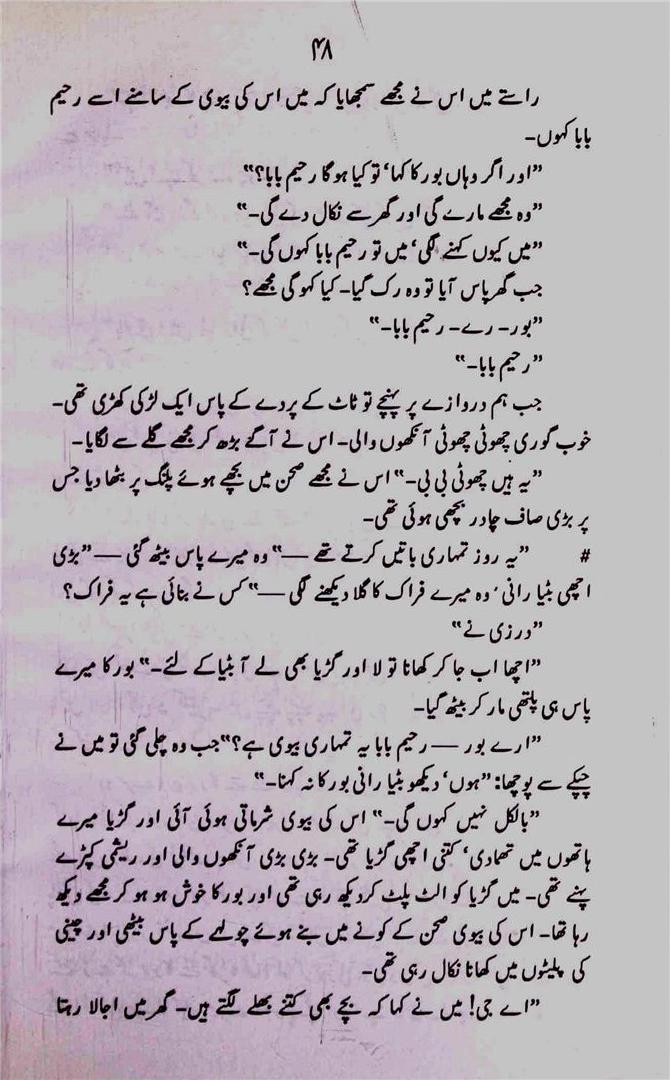 ۴۸
راستے میں اس نے مجھے سمجھایا کہ میں اس کی بیوی کے سامنے اسے رحیم
بابا کہوں۔
”اور اگر وہاں بور کا کہا‘ تو کیا ہو گا رحیم بابا؟“
”وہ مجھے مارے گی اور گھر سے نکال دے گی۔“
”میں کیوں کہنے لگی‘ میں تو رحیم بابا کہوں گی۔“
جب گھر پاس آیا تو وہ رک گیا۔ کیا کہو گی مجھے؟
”بور۔ رے۔ رحیم بابا۔“
”رحیم بابا۔“
جب ہم دروازے پر پہنچے تو ٹاٹ کے پردے کے پاس ایک لڑکی کھڑی تھی۔
خوب گوری چھوٹی چھوٹی آنکھوں والی۔ اس نے آگے بڑھ کر مجھے گلے سے لگایا۔
”یہ ہیں چھوٹی بی بی۔“ اس نے مجھے صحن میں بچھے ہوئے پلنگ پر بٹھا دیا جس
پر بڑی صاف چادر بچھی ہوئی تھی۔
# ”یہ روز تمہاری باتیں کرتے تھے —“ وہ میرے پاس بیٹھ گئی — ”بڑی
اچھی بٹیا رانی‘ وہ میرے فراک کا گلا دیکھنے لگی —“ کس نے بنائی ہے یہ فراک؟
”درزی نے“
”اچھا اب جا کر کھانا تو لا اور گڑیا بھی لے آ بٹیا کے لئے۔“ بور کا میرے
پاس ہی پلتھی مار کر بیٹھ گیا۔
”ارے بور — رحیم بابا یہ تمہاری بیوی ہے؟“ جب وہ چلی گئی تو میں نے
چپکے سے پوچھا: ”ہوں‘ دیکھو بٹیا رانی بور کا نہ کہنا۔“
”بالکل نہیں کہوں گی۔“ اس کی بیوی شرماتی ہوئی آئی اور گڑیا میرے
ہاتھوں میں تھما دی‘ کتنی اچھی گڑیا تھی۔ بڑی بڑی آنکھوں والی اور ریشمی کپڑے
پہنے تھی۔ میں گڑیا کو الٹ پلٹ کر دیکھ رہی تھی اور بور کا خوش ہو ہو کر مجھے دیکھ
رہا تھا۔ اس کی بیوی صحن کے کونے میں بنے ہوئے چولہے کے پاس بیٹھی اور چینی
کی پلیٹوں میں کھانا نکال رہی تھی۔
”اے جی! میں نے کہا کہ بچے بھی کتنے بھلے لگتے ہیں۔ گھر میں اجالا رہتا